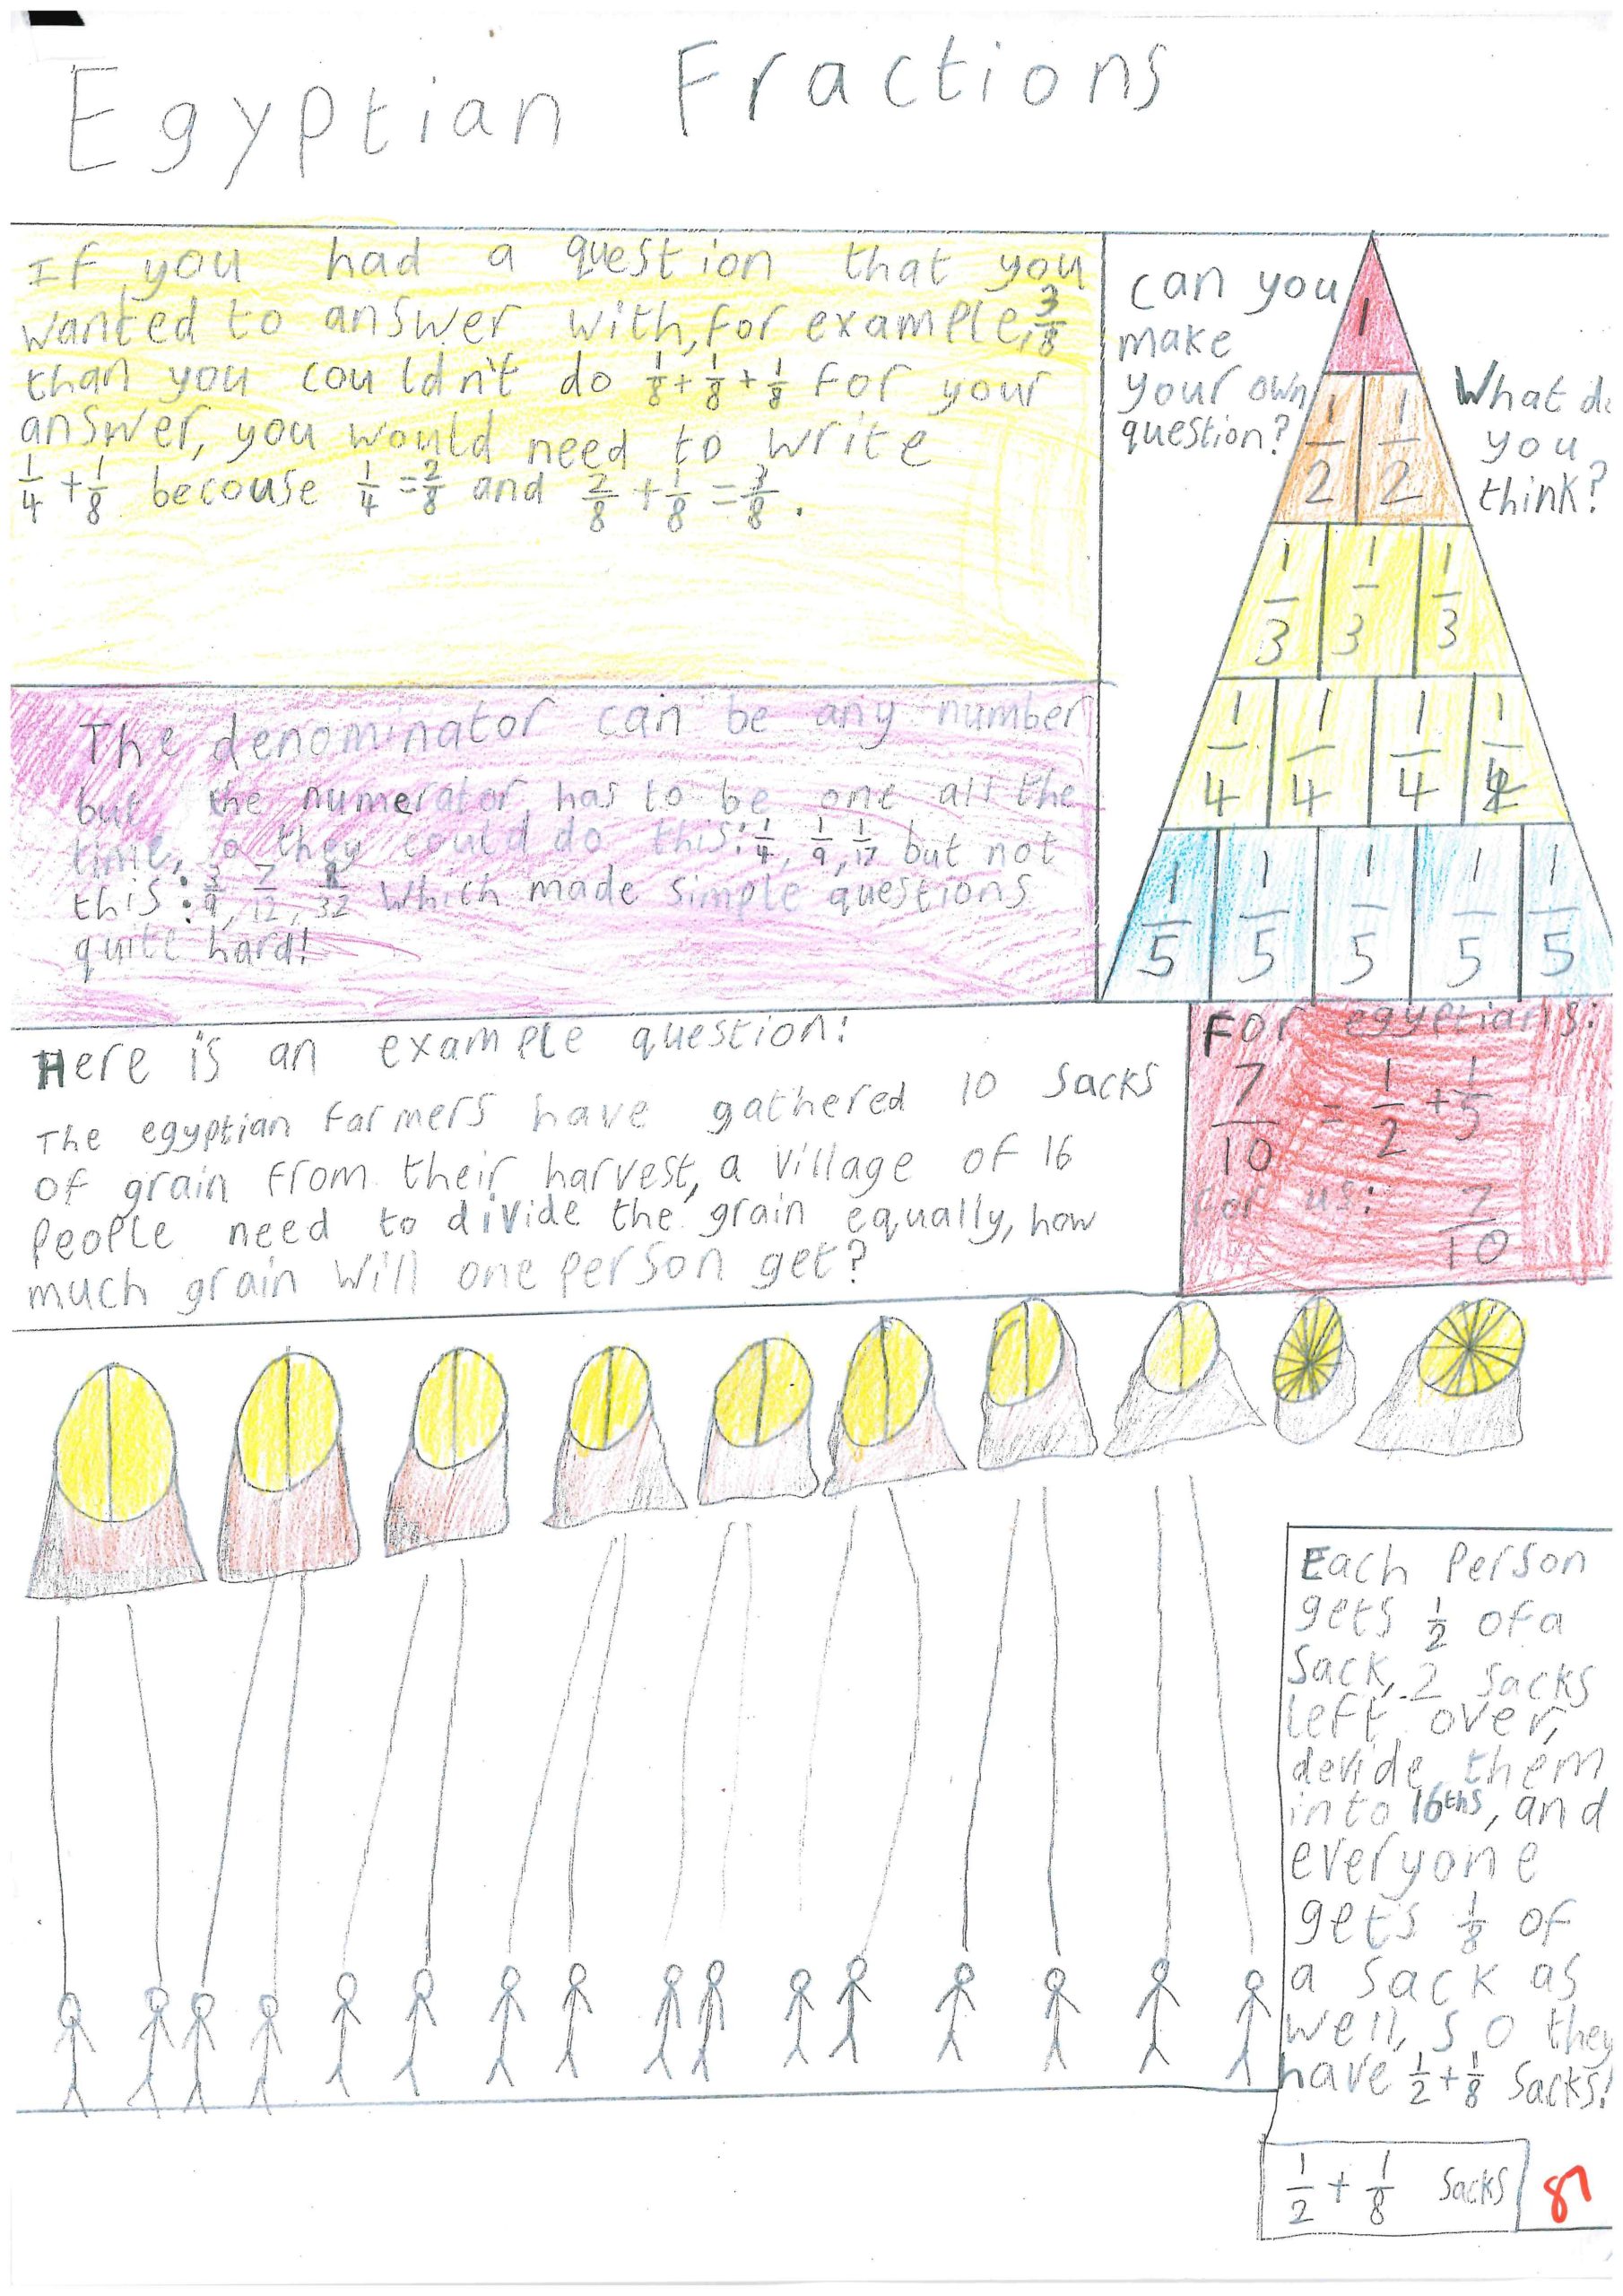 Egyptian Fractions
If you had a question that you
wanted to answer with, for example, 3/8
than you couldn't do 1/8 + 1/8 + 1/8 for your
answer, you would need to write
1/4 + 1/8 becouse 1/4 = 2/8 and 2/8 + 1/8 = 3/8.
can you
make
your own
question?
What do
you
think?
1
1/2 1/2
1/3 1/3 1/3
1/4 1/4 1/4 1/4
1/5 1/5 1/5 1/5 1/5
The denominator can be any number
but the numerator has to be one all the
time, so they could do this: 1/4, 1/9, 1/17 but not
this: 3/9, 7/12, 8/32 which made simple questions
quite hard!
Here is an example question:
The egyptian farmers have gathered 10 sacks
of grain from their harvest, a village of 16
people need to divide the grain equally, how
much grain will one person get?
For egyptians:
7/10 = 1/2 + 1/5
For us: 7/10
Each person
gets 1/2 of a
sack, 2 sacks
left over,
devide them
into 16ths, and
everyone
gets 1/8 of
a sack as
well, so they
have 1/2 + 1/8 sacks!
1/2 + 1/8 sacks